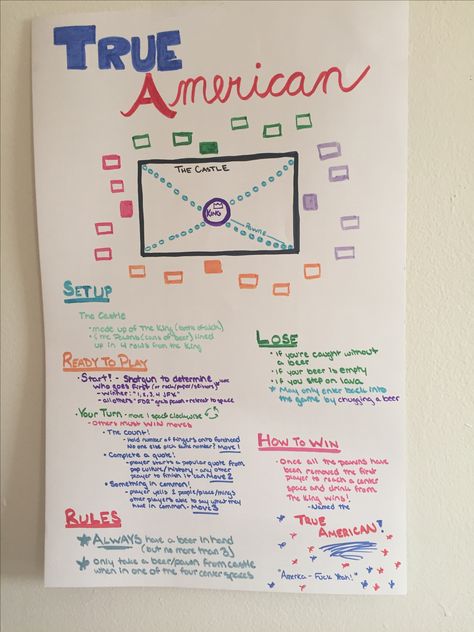 TRUE
American
THE CASTLE
KING
PAWNS
SETUP
The Castle
• made up of The King (bottle of alch)
• & the Pawns (cans of beer) lined
up in 4 rows from the King
READY TO PLAY
• Start! - Shotgun to determine
who goes first (or rock/paper/scissors)
- winner: "1, 2, 3, 4 JFK"
- all others: "FDR" grab pawn + retreat to space
• Your Turn - move 1 space clockwise
- Others must WIN moves
• The count!
- Hold number of fingers onto forehead
No one else pick same number? Move 1
• Complete a quote!
- player starts a popular quote from
pop culture/history - any other
player to finish it can Move 2
• Something in common!
- player yells 2 people/place/things
other players able to say what they
have in common - Move 3
RULES
ALWAYS have a beer in hand
(but no more than 3)
only take a beer/pawn from castle
when in one of the four center spaces
LOSE
• if you're caught without
a beer
• if your beer is empty
• if you step on lava
* May only enter back into
the game by chugging a beer
HOW TO WIN
• Once all the pawns have
been removed the first
player to reach a center
space and drink from
The King wins!
- Named the
TRUE
AMERICAN!
"America - Fuck Yeah!"